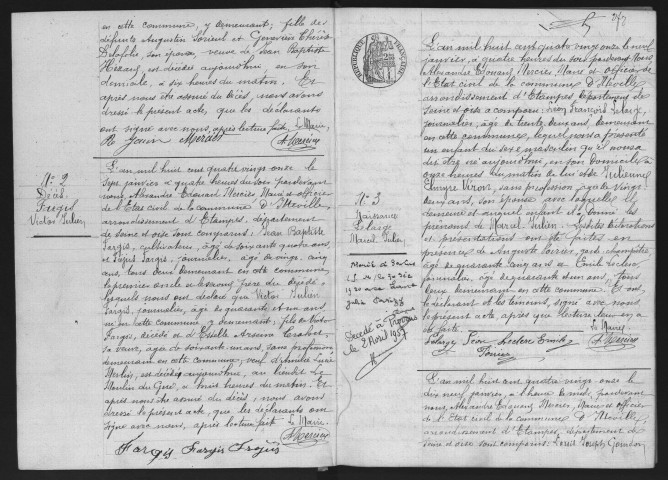 en cette commune, y demeurant; fille des
défunts Augustin Lorieul et Geneviève Thérèse
son épouse, veuve de Jean Baptiste
est décédée aujourd'hui, en son
domicile, à six heures du matin. Et
après nous être assuré du décès, nous avons
dressé le présent acte, que les déclarants
ont signé avec nous, après lecture faite. Le Maire,
AMercier
N° 2
Décès
Fargis
Victor Julien
L'an mil huit cent quatre vingt onze le
sept janvier à quatre heures du soir, pardevant
nous, Alexandre Edouard Mercier, Maire et officier
de l'Etat civil de la commune d'Itteville,
arrondissement d'Etampes, département
de Seine et Oise, sont comparus: Jean Baptiste
Fargis, cultivateur, âgé de soixante quatre ans,
et Louis Fargis, journalier, âgé de vingt cinq
ans, tous deux demeurant en cette commune,
le premier oncle et le second frère du décédé.
Lesquels nous ont déclaré que Victor Julien
Fargis, journalier, âgé de quarante et un ans,
né en cette commune, y demeurant; fils de Victor
Fargis, décédé et d'Estelle Arsène
sa veuve, âgée de soixante un ans, sans profession
demeurant en cette commune, veuf d'Amélie
Merlin, est décédé aujourd'hui, au lieudit Le
Moulin du Gué, à trois heures du matin. Et
après nous être assuré du décès, nous avons
dressé le présent acte, que les déclarants ont
signé avec nous, après lecture faite. Le Maire
Fargis Fargis
AMercier
REPUBLIQUE FRANÇAISE
N° 3
Naissance
Lelarge
Marcel Julien
Marié à
le 30
1920 avec
Julie
Décédé à Provins
le 2 Avril 1957
L'an mil huit cent quatre vingt onze le neuf
janvier, à quatre heures du soir, pardevant Nous
Alexandre Edouard Mercier, Maire et officier de
l'Etat civil de la commune d'Itteville
arrondissement d'Etampes, département de
Seine et Oise a comparu: Léon François Lelarge,
journalier, âgé de trente deux ans, demeurant
en cette commune, lequel nous a présenté
un enfant du sexe masculin qu'il nous a
dit être né aujourd'hui, en son domicile à
onze heures du matin de lui et de Julienne
Elmyre Viron, sans profession, âgée de vingt
deux ans, son épouse avec laquelle il
demeure et auquel enfant il a donné les
prénoms de Marcel Julien. Lesdites déclarations
et présentations ont été faites en
présence de Auguste
âgé de quarante ans et Emile Leclerc,
journalier, âgé de quarante deux ans, tous
deux demeurant en cette commune. Et ont,
le déclarant et les témoins, signé avec nous
le présent acte, après que lecture leur en a
été faite.
Le Maire
Lelarge Léon Leclerc Emile
AMercier
L'an mil huit cent quatre vingt onze le
dix neuf janvier, à heure pardevant
nous, Alexandre Edouard Mercier, Maire et officier
de l'Etat civil de la commune d'Itteville,
arrondissement d'Etampes, département de
Seine et Oise sont comparus: Louis Joseph Gourdon